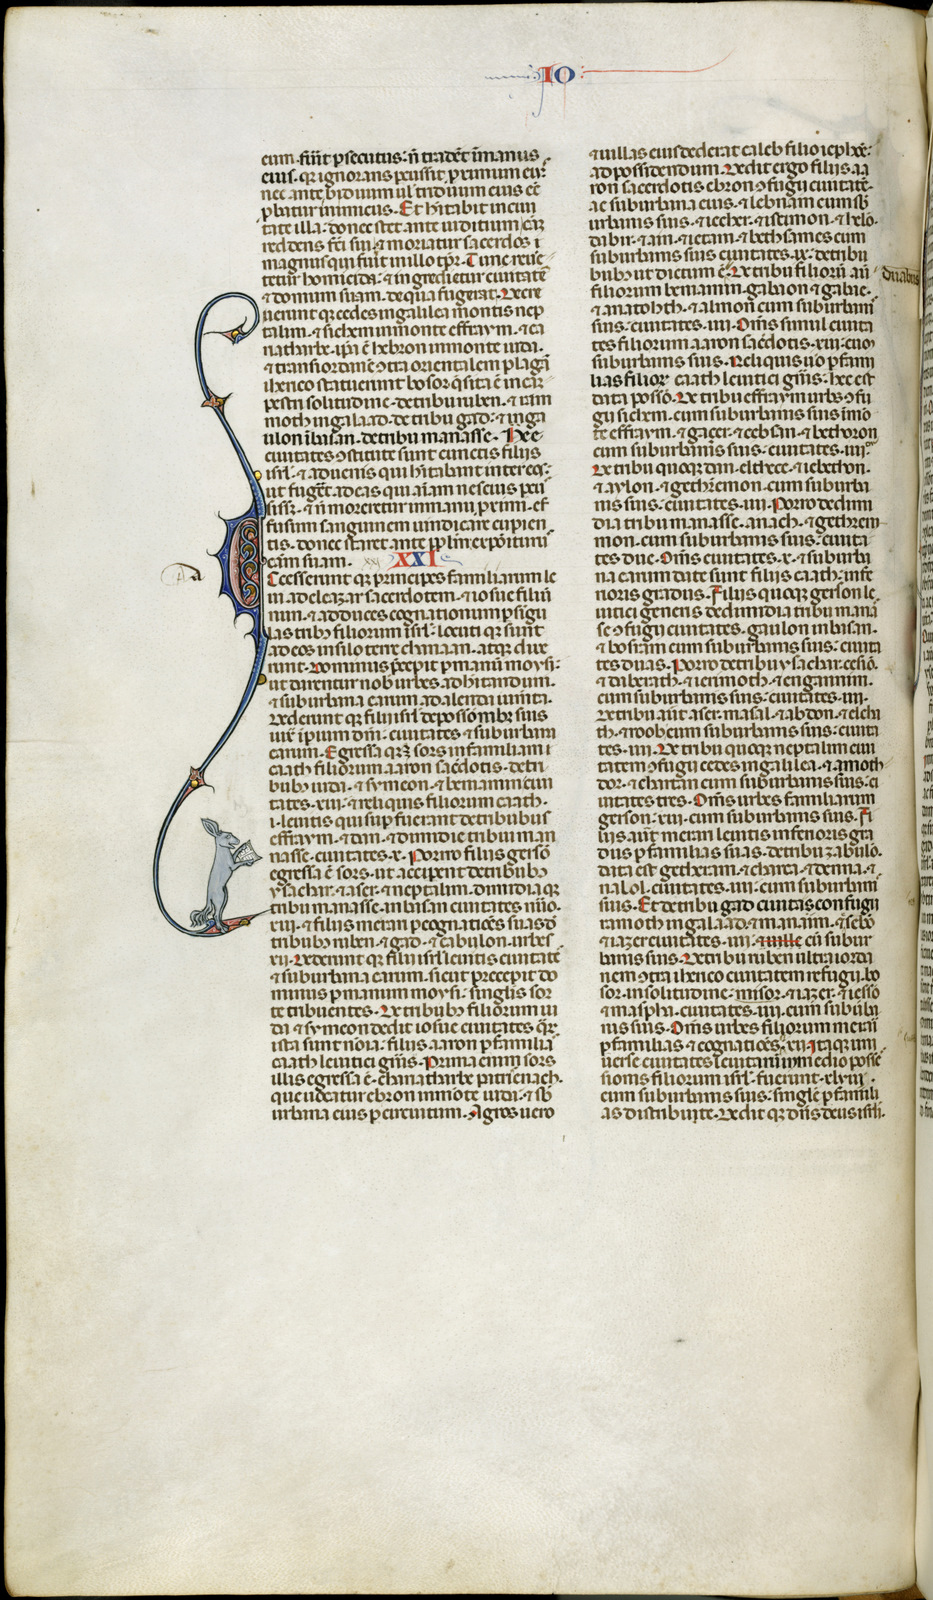 IO
eum fu͛it ꝑsecutus: n̄ tradēt ī manus
eius. qͥ ignorans ꝑcussit ꝓximum eiꝰ
nec ante biduum ul' triduum eius eē
ꝓbatur inimicus. Et hītabit in ciui
tate illa: donec stet ante iuditium cāz
reddens fc̄i sui. ⁊ moriatur sacerdos
magnus qui fu͛it in illo tp̄r. Tunc reu͛
tetur homicida: ⁊ ingredietur ciuitatē
⁊ domum suam. de qua fugerat. Decre
uerunt qꝫ cedes in galilea montis nep
talim. ⁊ sichem in monte effraym. ⁊ ca
riatharbe. ip̄a ē hebron in monte iuda.
⁊ trans iordanē ↄtra orientalem plagā
iherico statuerunt bosor q̄ sita ē in cā
pestri solitudine. de tribu ruben. ⁊ ram
moth in galaad. de tribu gad. ⁊ in ga
ulon ī basan. de tribu manasse. Hee
ciuitates ↄstitute sunt cunctis filiis
isrl'. ⁊ aduenis qui hītabant inter eos:
ut fugēt ad eas qui aīam nescius ꝑcu
siss;. ⁊ n̄ moreretur in manu ꝓximi. ef
fusum sanguinem uindicare cupien
tis. donec staret ante pp̄lm expōiturus
cām suam. XXI
Accesserunt qꝫ principes familiarum le
ui ad eleazar sacerdotem. ⁊ iosue filiū
nun. ⁊ ad duces cognationum ꝑ sīgu
las tribꝰ filiorum isrl'. locuti qꝫ sunt
ad eos in silo terre chanaan. atqꝫ dixe
runt. Dominus p̄cepit ꝑ manū moysi:
ut darentur nob' urbes ad hītandum.
⁊ suburbana earum ad alenda iumīta.
Dederunt qꝫ filii isrl' de possōnibꝫ suis
iux̄ īperium dn̄i: ciuitates ⁊ suburbana
earum. Egressa qꝫ sors in familiam
caath filiorum aaron sac̄dotis. de tri
bubꝰ iuda. ⁊ symeon. ⁊ beniamin ciui
tates. xiii. ⁊ reliquis filiorum caath.
i. leuitis qui suꝑfuerant de tribubus
effraym. ⁊ dan. ⁊ dimidie tribui ma
nasse. ciuitates. x. Porro filiis gersō
egressa ē sors. ut acciperent de tribubꝰ
ysachar. ⁊ aser. ⁊ neptalim. dimidia qꝫ
tribu manasse. in basan ciuitates nūo.
xiii. ⁊ filiis merari ꝑ cognatiōes suas d'
tribubꝰ ruben. ⁊ gad. ⁊ zabulon. urbes
xii. Dederunt qꝫ filii isrl' leuitis ciuitates
⁊ suburbana earum. sicut precepit do
minus ꝑ manum moysi: singlis sor
te tribuentes. De tribubꝰ filiorum iu
da ⁊ symeon dedit iosue ciuitates qͣꝝ
ista sunt noīa. filiis aaron ꝑ familias
caath leuitici gn̄is. Prima enim sors
illis egressa ē. chariatharbe patris enach.
que uocatur ebron in monte iuda. ⁊ sb
urbana eius ꝑ circuitum. Agros uero
⁊ uillas eius dederat caleb filio iephōe:
ad possidendum. Dedit ergo filiis aa
ron sacerdotis ebron ↄfugii ciuitatē.
ac suburbana eius. ⁊ lebnam cum sb
urbanis suis. ⁊ iether. ⁊ istimon. ⁊ helo.
dabir. ⁊ ain. ⁊ ietam. ⁊ bethsames cum
suburbanis suis ciuitates. ix. de tribu
bubꝰ ut dictum ē. De tribu filiorū aū duabus
filiorum beniamin. gabaon ⁊ gabee.
⁊ anatoth. ⁊ almon cum suburbanis
suis. ciuitates. iiii. Om̄s simul ciuita
tes filiorum aaron sac̄dotis. xiii. cum
suburbanis suis. Reliquis uͦ ꝑ fami
lias filiorꝝ caath leuitici gn̄is. hec est
data possō. De tribu effraym urbs ↄfu
gii sichem. cum suburbanis suis. in mō
te effraym. ⁊ gazer. ⁊ cebsan. ⁊ bethoron
cum suburbanis suis. ciuitates. iiii.
De tribu quoqꝫ dan. elthece. ⁊ iebethon.
⁊ aylon. ⁊ gethremon. cum suburba
nis suis. ciuitates. iiii. Porro de dimi
dia tribu manasse. anach. ⁊ gethrem
mon. cum suburbanis suis. ciuita
tes due. Om̄s ciuitates. x. ⁊ suburba
na earum date sunt filiis caath. infe
rioris gradus. Filiis quoqꝫ gerson le
uitici generis de dimidia tribu mana
se ↄfugii ciuitates. gaulon in basan.
⁊ bosram cum suburbanis suis. ciuita
tes duas. Porro de tribu ysachar. cesiō.
⁊ daberath. ⁊ ierimoth. ⁊ engannim.
cum suburbanis suis. ciuitates. iiii.
De tribu aūt aser. masal. ⁊ abdon. ⁊ elcha
th. ⁊ roob cum suburbanis suis: ciuita
tes. iiii. De tribu quoqꝫ neptalim ciui
tatem ↄfugii cedes in galilea. ⁊ amoth
dor. ⁊ chartan cum suburbanis suis. ci
uitates tres. Om̄s urbes familiarum
gerson. xiii. cum suburbanis suis. Fi
liis aūt merari leuitis inferioris gra
dus ꝑ familias suas. de tribu zabulo.
data est gethenam. ⁊ charta. ⁊ denna. ⁊
nalol. ciuitates. iiii. cum suburbanis
suis. Et de tribu gad ciuitas confugii
ramoth in galaad. ⁊ manaim. ⁊ esebō
⁊ iazer ciuitates. iiii. cū subur
banis suis. De tribu ruben ultra iorda
nem ↄtra iherico ciuitatem refugii. bo
sor. in solitudine. misor. ⁊ iazer. ⁊ iessō
⁊ masphi. ciuitates. iiii. cum suburba
nis suis. Om̄s urbes filiorum merari
ꝑ familias ⁊ cognatiōes. xii. Itaqꝫ uni
uerse ciuitates leuitarum in medio posse
sionis filiorum isrl' fuerunt. xlviii.
cum suburbanis suis. singule ꝑ famili
as distribute. Dedit qꝫ dn̄s deus isrl'.